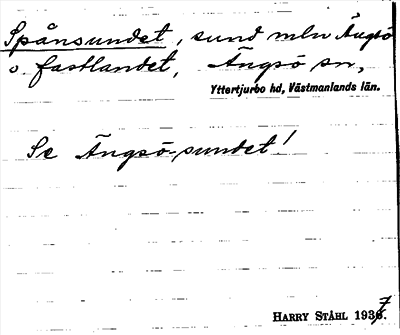 Spånsundet, sund mln Ängsö
o. fastlandet, Ängsö sn,
Yttertjurbo hd, Västmanlands län.
Se Ängsö-sundet!
HARRY STÅHL 1937.